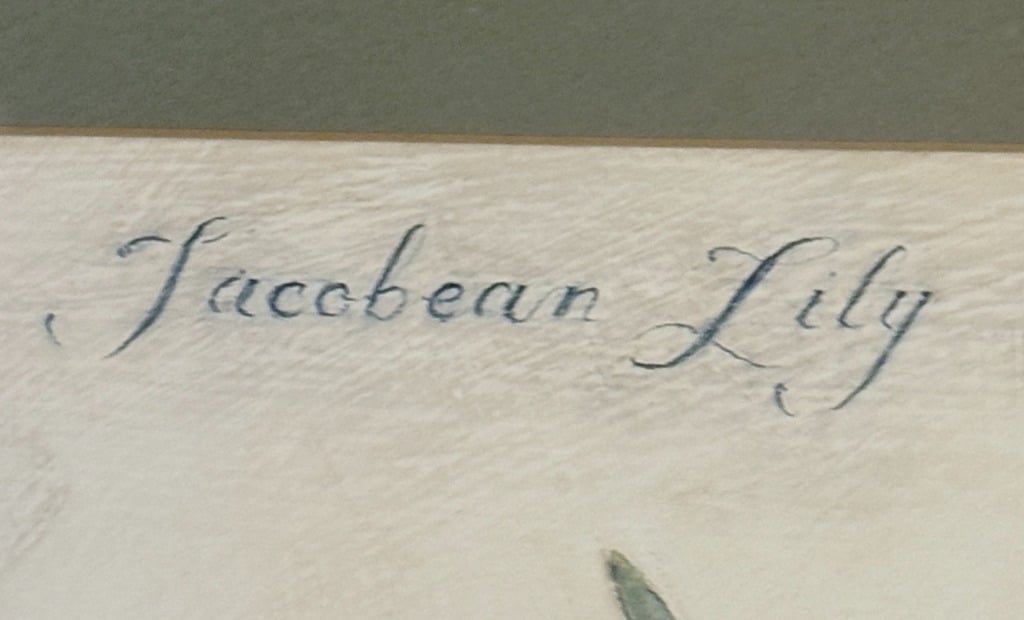 Jacobean Lily